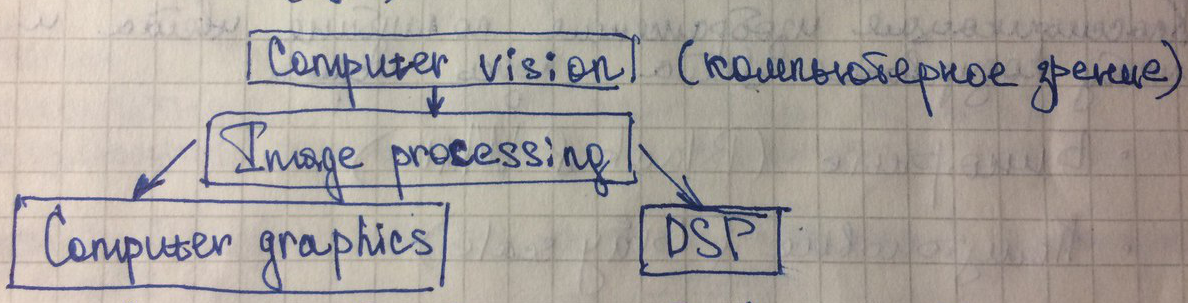 Computer vision (компьютерное зрение)
Image processing
Computer graphics DSP